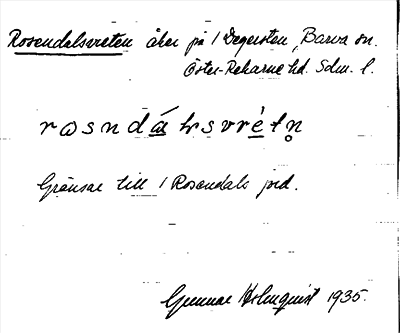 Rosendalsvreten åker på 1 Degersten, Barva sn.
Öster-Rekarne hd. Sdm. l.
Gränsar till 1 Rosendals jord.
Gunnar Holmquist 1935.